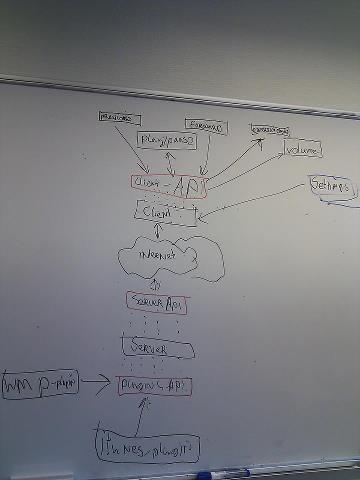 Play/pause
volume
Client-API
Settings
Client
INTERNET
Server Api
Server
WMP-plugin
PLUGINS API
iTunes-plugin